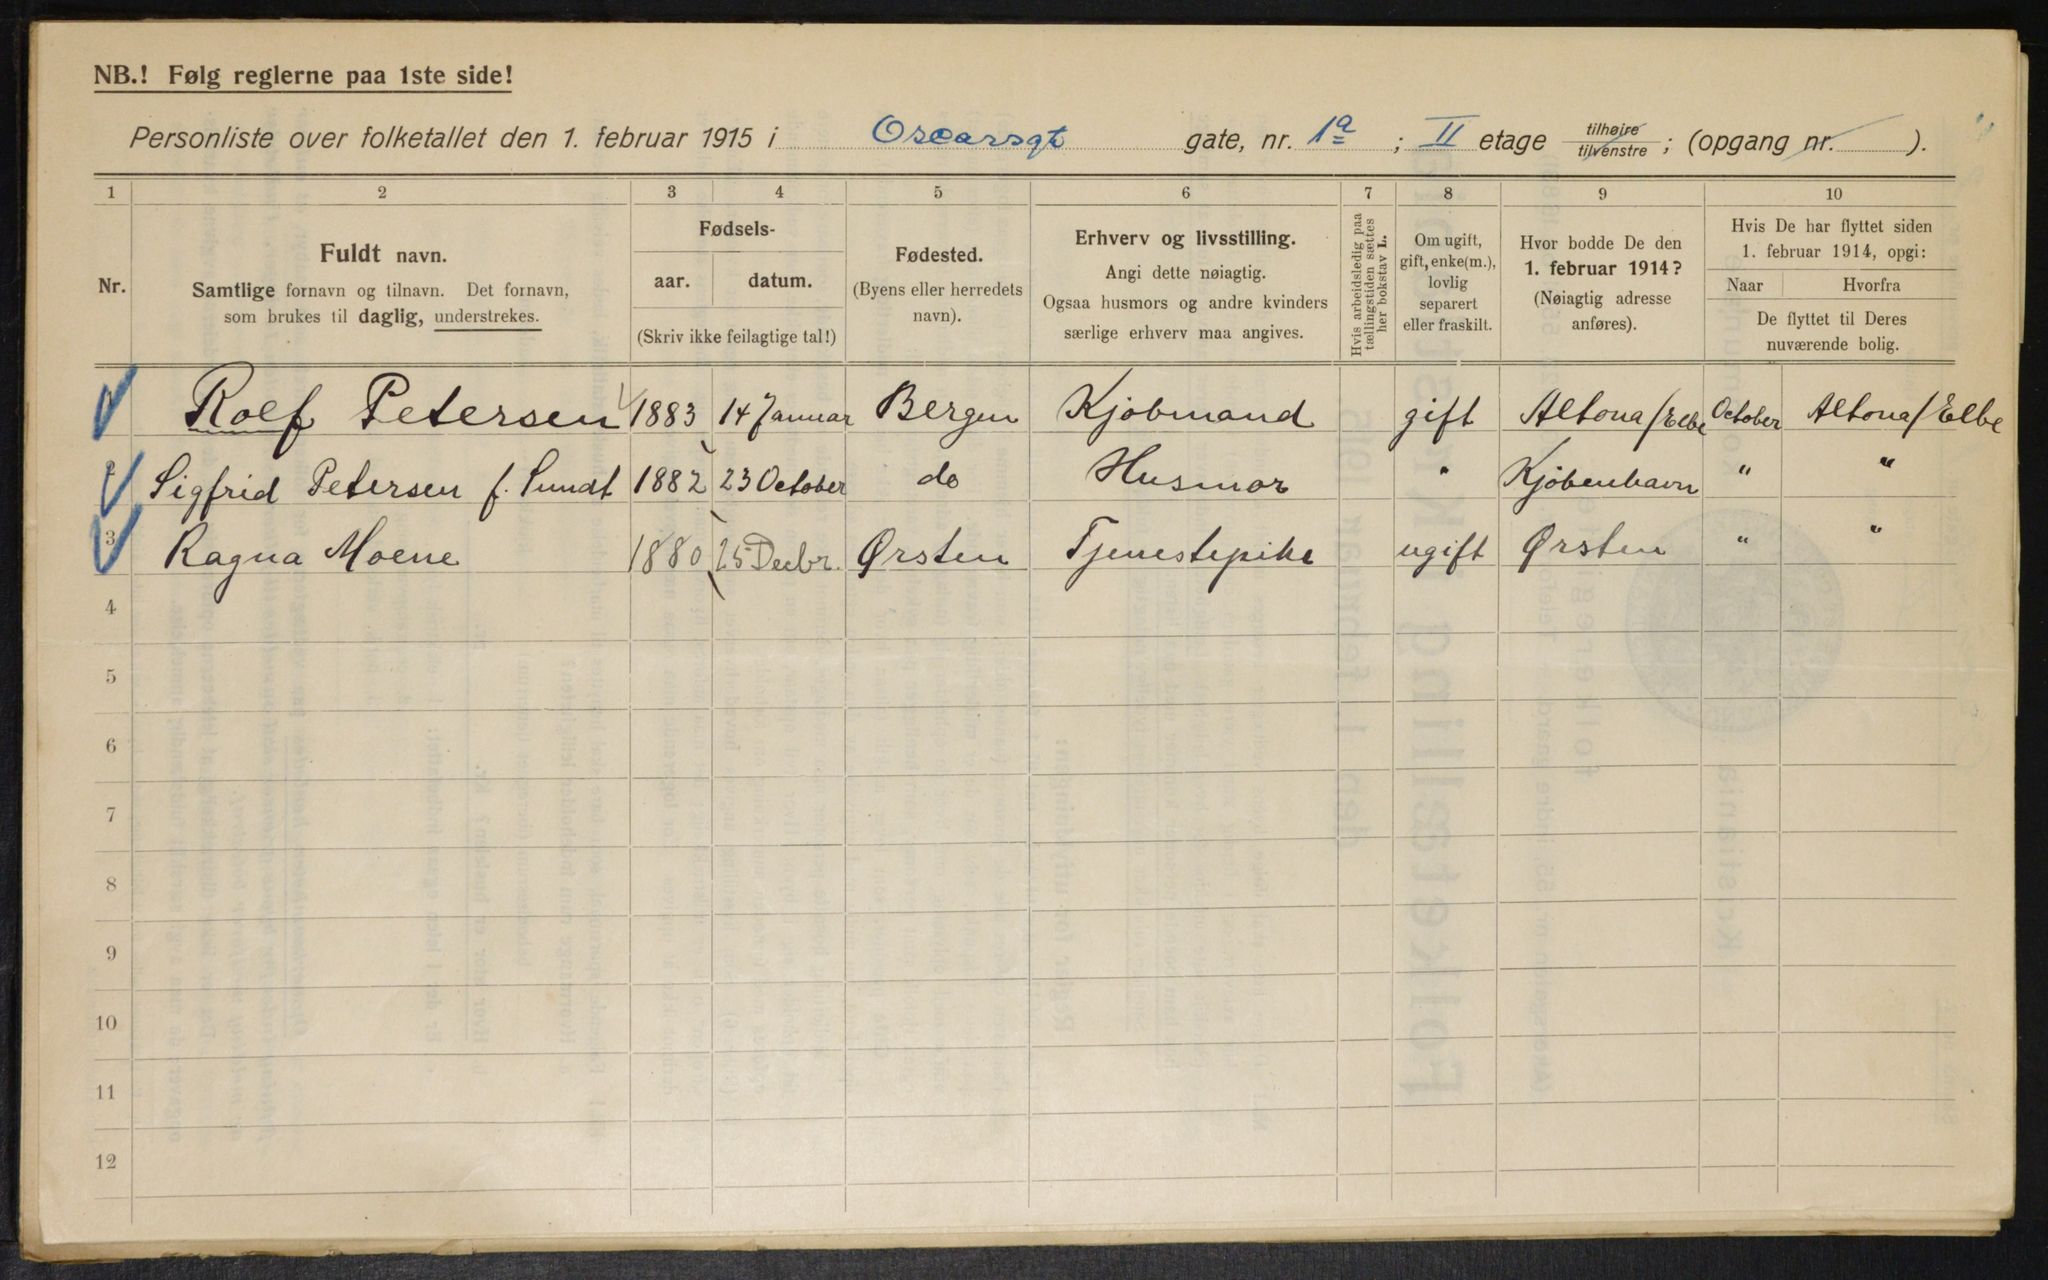 NB.! Følg reglerne paa 1ste side!
Personliste over folketallet den 1. februar 1915 i Oscarsgt gate, nr. 1a ; II etage tilhøire tilvenstre ; (opgang nr. ).
1 2 3 4 5 6 7 8 9 10
Nr.
Fuldt navn.
Samtlige fornavn og tilnavn. Det fornavn,
som brukes til daglig, understrekes.
Fødsels-
aar. datum.
(Skriv ikke feilagtige tal!)
Fødested.
(Byens eller herredets
navn).
Erhverv og livsstilling.
Angi dette nøiagtig.
Ogsaa husmors og andre kvinders
særlige erhverv maa angives.
Hvis arbeidsledig paa
tællingstiden sættes
her bokstav L.
Om ugift,
gift, enke(m.),
lovlig
separert
eller fraskilt.
Hvor bodde De den
1. februar 1914?
(Nøiagtig adresse
anføres).
Hvis De har flyttet siden
1. februar 1914, opgi:
Naar Hvorfra
De flyttet til Deres
nuværende bolig.
1 Rolf Petersen 1883 14 Januar Bergen Kjøbmand gift Altona/Elbe October Altona/Elbe
2 Sigfrid Petersen f. Sundt 1882 23 October do Husmor " Kjöbenhavn " "
3 Ragna Moene 1880 25 Decbr. Ørsten Tjenestepike ugift Ørsten " "
4
5
6
7
8
9
10
11
12